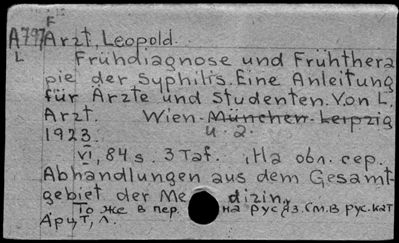 F
A797 Arzt, Leopold.
L
Frühdiagnose und Frühthera
pie der Syphilis. Eine Anleitung
für Ärzte und Studenten. Von L.
Arzt. Wien München Leipzig
1923. u. a.
VI, 84 s. 3 Taf. , На обл. сер.
Abhandlungen aus dem Gesamt-
gebiet der Me dizin„
То же в пер. на рус яз. см. в рус. кат
Арцт, Л.